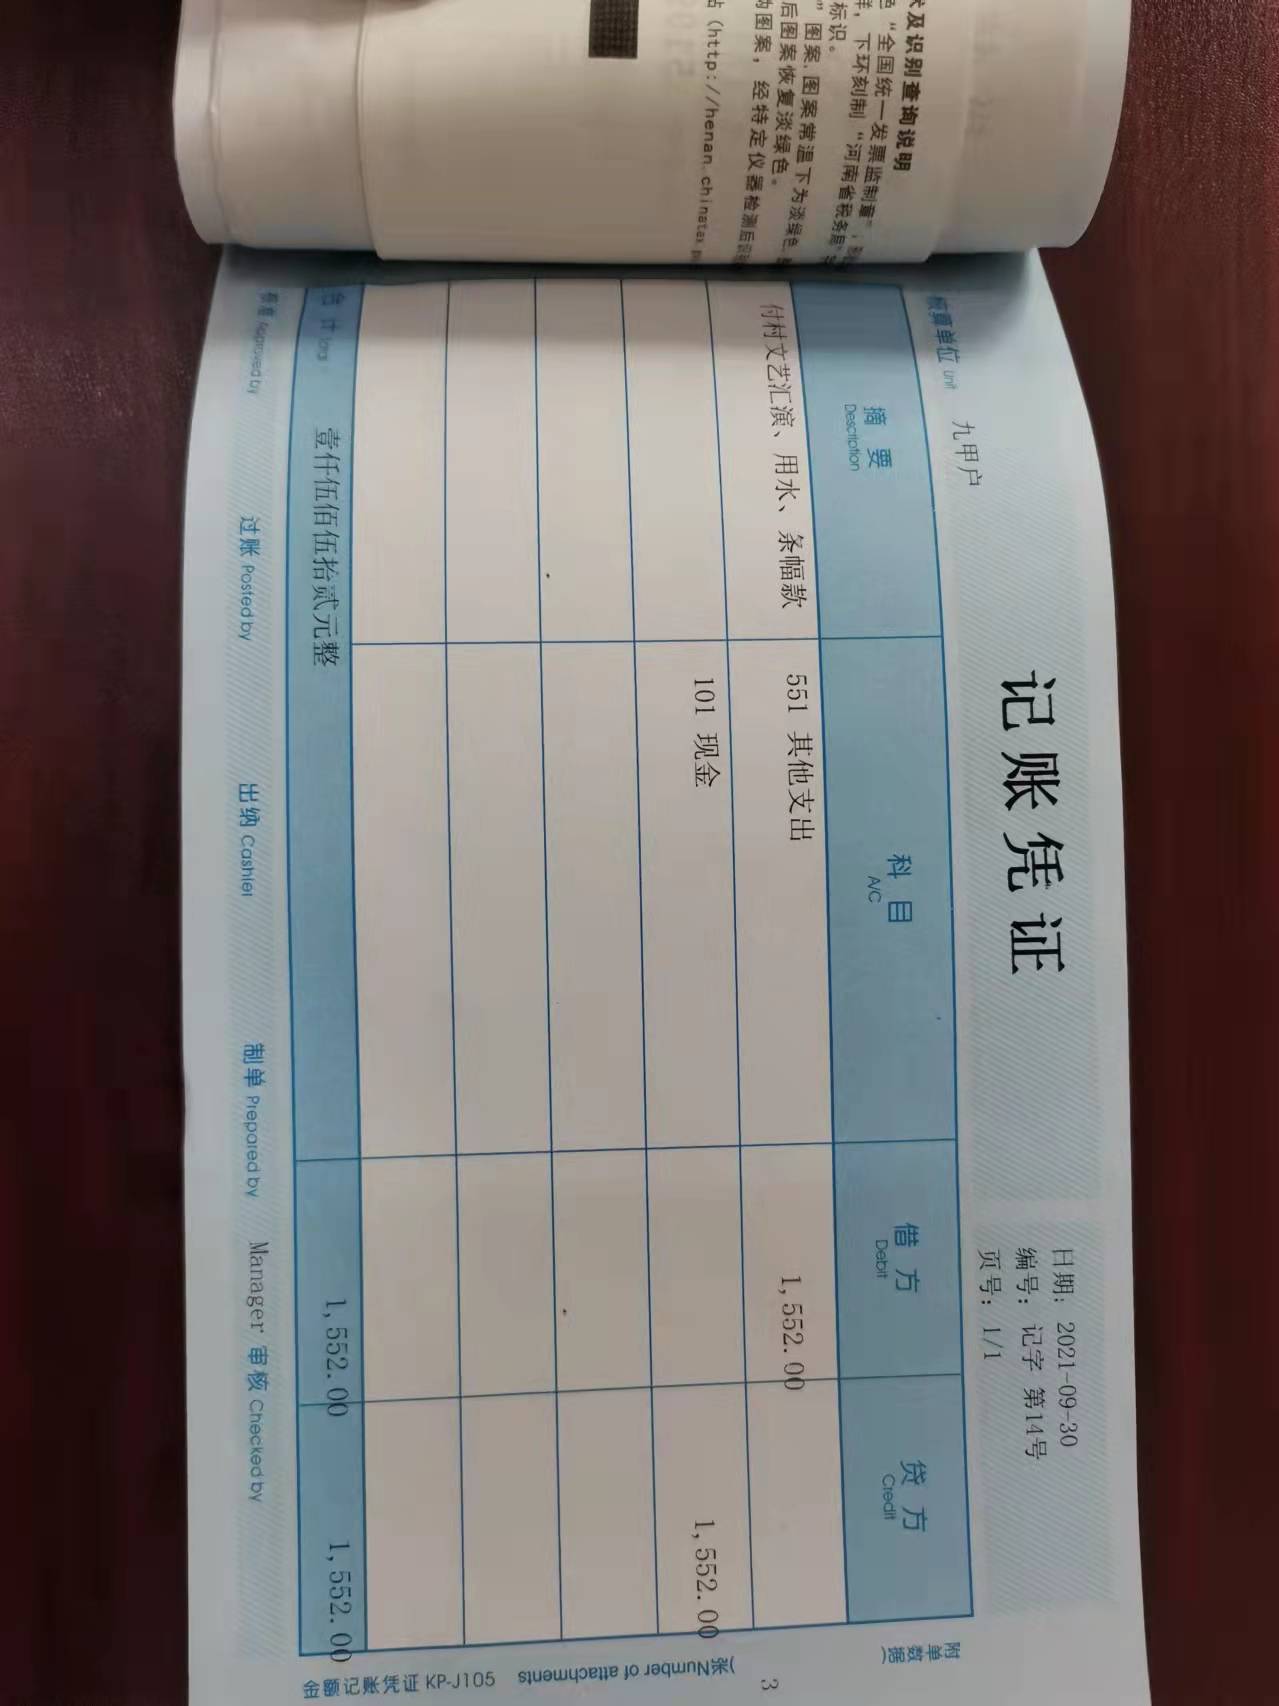 术及识别查询说明
色“全国统一发票监制章”
样，下环刻制“河南省税务局”
标识。
”图案，图案常温下为淡绿色，
后图案恢复淡绿色。
的图案，经特定仪器检测后
站（http://henan.chinatax
记账凭证
日期：2021-09-30
编号：记字 第14号
页号：1/1
核算单位 Unit 九甲户
附单据数
摘要 科目 借方 贷方
Description A/C Debit Credit
付村文艺汇演、用水、条幅款 551 其他支出 1,552.00
101 现金 1,552.00
3
张 Number of attachments)
合计 Total: 壹仟伍佰伍拾贰元整 1,552.00 1,552.00
核准 Approved by 过账 Posted by 出纳 Cashier 制单 Prepared by Manager 审核 Checked by
金额记账凭证 KP-J105